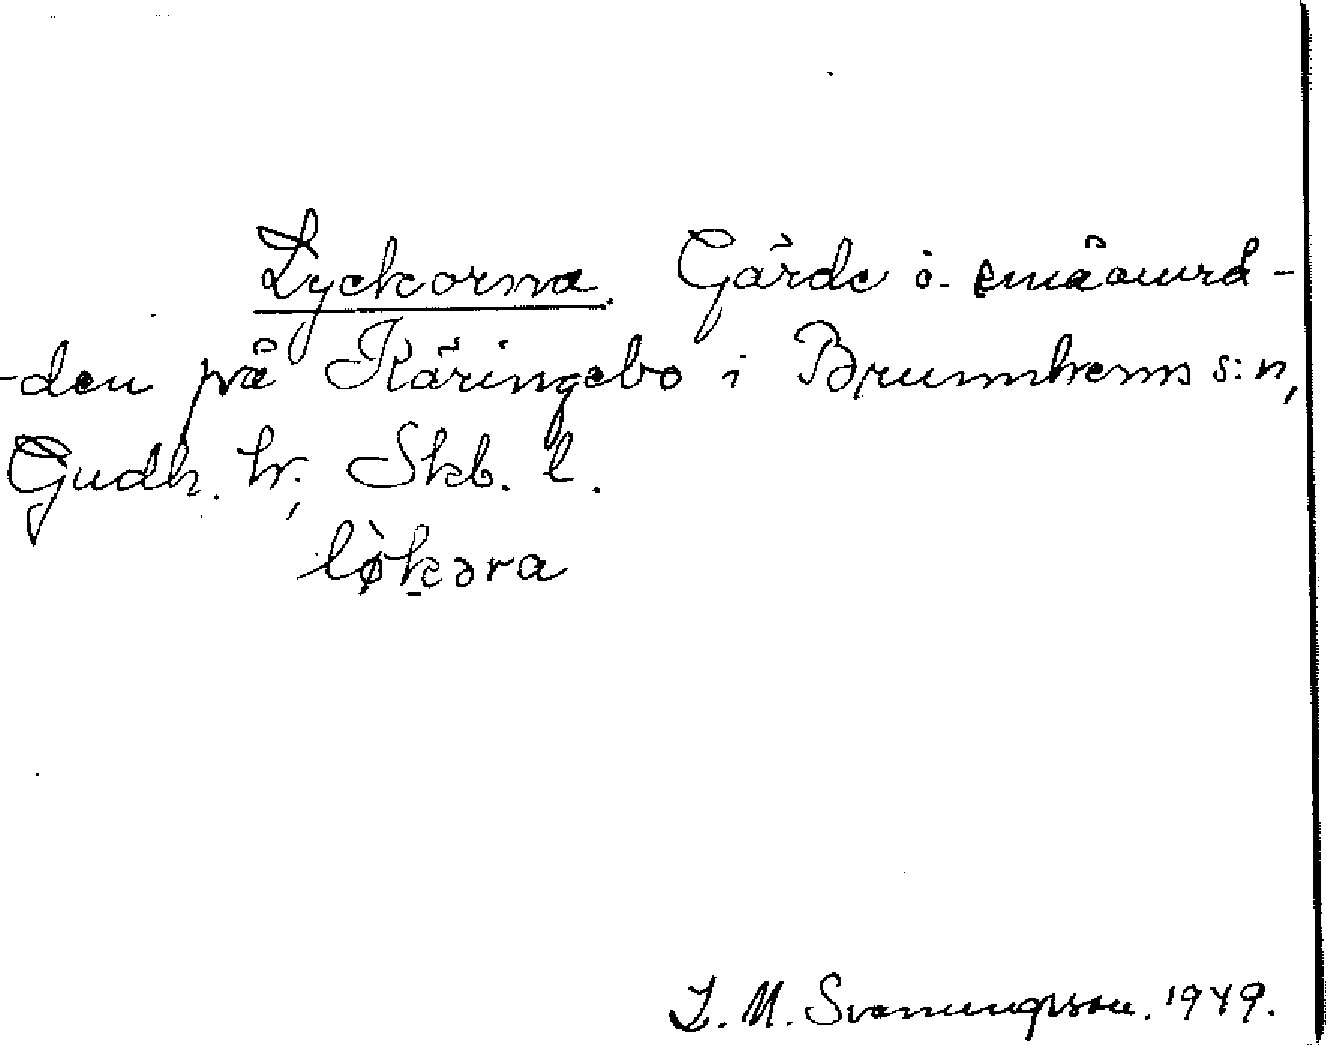 Lyckorna. Gärde i småområ-
-den på Käringebo i Brunnhems s:n,
Gudh. hr, Skb. l.
lø̀kəra
L. M. Svanungsson. 1949.